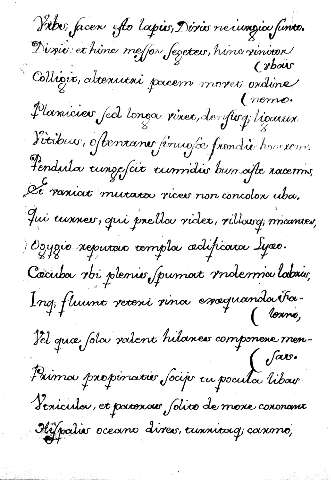 Urbis, sacer esto lapis, Diris ne iurgia sunto.
Dixi: et hinc messor segetes, hinc vinitor
(rbais
Colligit, alterutri pacem movet ordine
(nemo.
Planicies sed longa viret, densisq; ligatur
Vitibus, ostentans frondis honorem.
Pendula turgescit tumidis racemis,
Et variat mutata vices non concolor uba.
Qui turres, qui prella videt, villasq; micantes,
Ogygio reputat templa ædificata Lyæo.
Cæcuba vbi plenis spumat vndemia labris,
Inq; fluunt veteri vina exæquanda Fa-
(lerno,
Vel quæ sola valent hilares componere men-
(sas.
Prima propinatis socijs tu pocula libas
Vtricula, et pateras solito de more coronant
Hispalis oceano dives, turritaq; carmo,